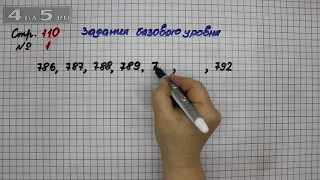 4 на 5.ru
Стр. 110 Задания базового уровня
№ 1
786, 787, 788, 789, 7 , , 792